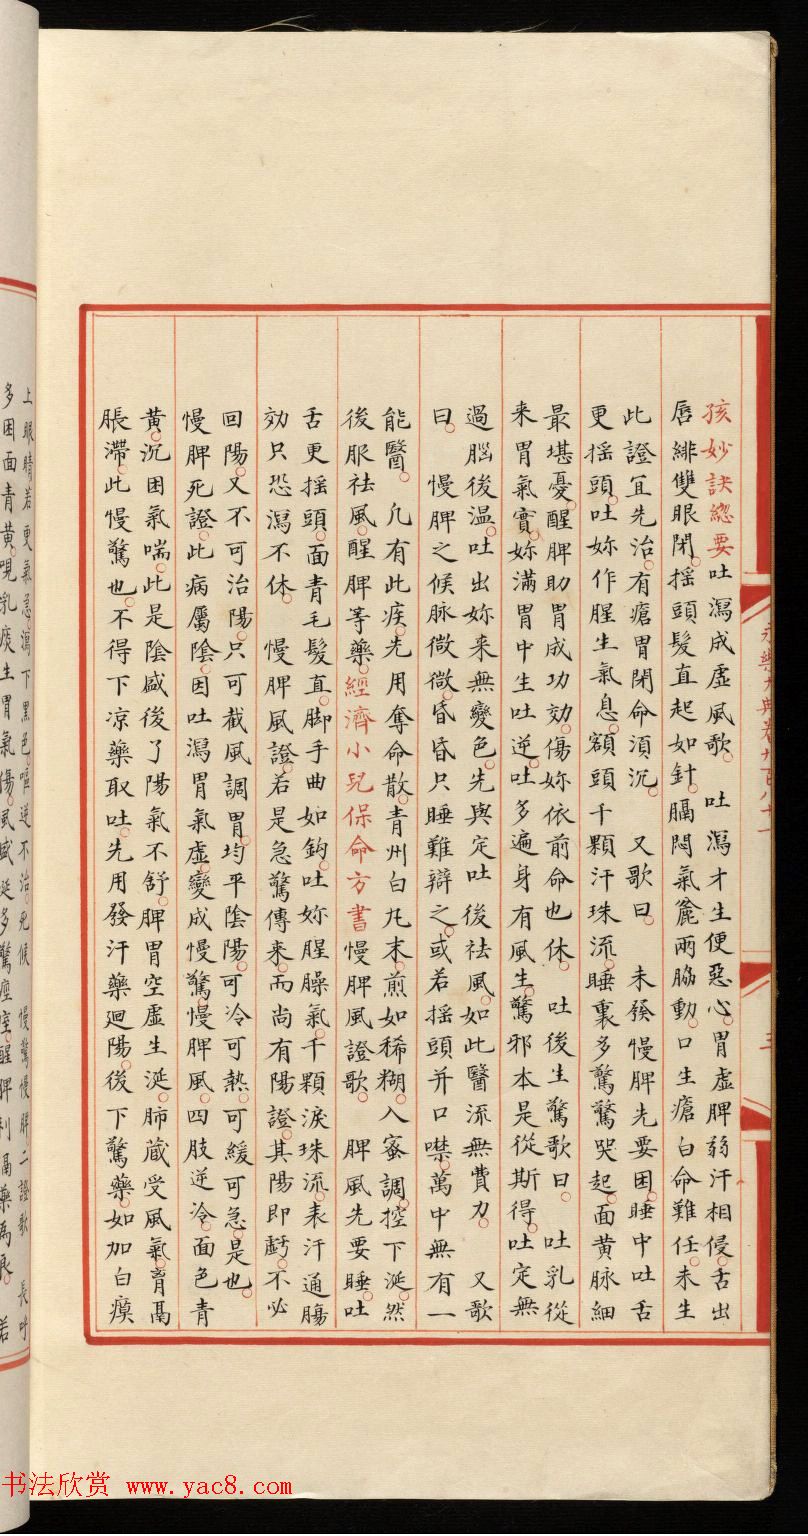 孩妙訣總要吐瀉成虛風歌。吐瀉才生便惡心。胃虛脾弱汗相侵。舌出
唇緋雙眼閉。搖頭髮直起如針。膈悶氣麄兩脇動。口生瘡白命難任。未生
此證宜先治。有瘡胃閉命須沉。又歌曰。未發慢脾先要困。睡中吐舌
更搖頭。吐妳作腥生氣息。額頭千顆汗珠流。睡裏多驚驚哭起。面黃脉細
最堪憂。醒脾助胃成功効。傷妳依前命也休。吐後生驚歌曰。吐乳從
来胃氣實。妳滿胃中生吐逆。吐多遍身有風生。驚邪本是從斯得。吐定無
過腦後溫。吐出妳来無變色。先與定吐後祛風。如此醫流無費力。又歌
曰。慢脾之候脉微微。昏昏只睡難辯之。或若搖頭并口噤。萬中無有一
能醫。凡有此疾。先用奪命散。青州白丸末。煎如稀糊。入蜜調。控下涎。然
後服祛風。醒脾等藥。經濟小兒保命方書慢脾風證歌。脾風先要睡。吐
舌更搖頭。面青毛髮直。脚手曲如鈎。吐妳腥臊氣。千顆淚珠流。表汗通腸
効只恐瀉不休。慢脾風證。若是急驚傳来。而尚有陽證。其陽即虧。不必
回陽。又不可治陽。只可截風調胃。均平陰陽。可冷可熱。可緩可急。是也。
慢脾死證。此病屬陰。因吐瀉胃氣虛。變成慢驚慢脾風。四肢逆冷。面色青
黃。沉困氣喘。此是陰盛後了陽氣不舒。脾胃空虛生涎。肺藏受風氣。胷膈
脹滯。此慢驚也。不得下凉藥取吐。先用發汗藥廻陽。後下驚藥。如加白瘼
永樂大典卷九百八十一
三
上眼睛若更氣急。瀉下黑色。嘔逆不治。死候 慢驚慢脾二證歌 長呼
多困面青黃。哯乳痰生胃氣傷。風盛涎多驚
醒脾利膈藥為良。若
书法欣赏 www.yac8.com